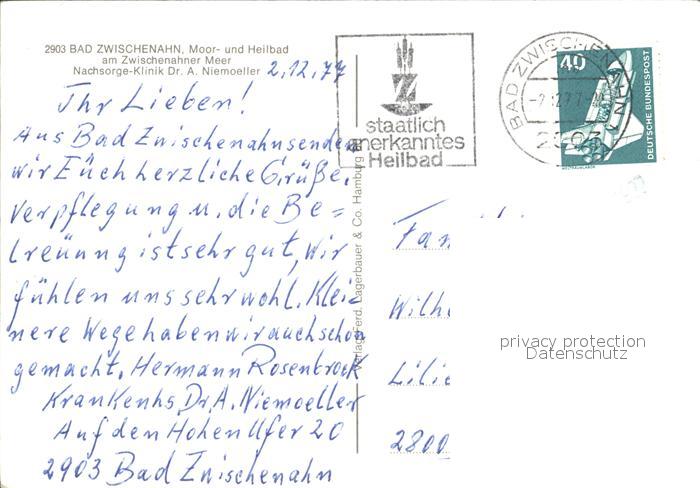 2903 BAD ZWISCHENAHN, Moor- und Heilbad
am Zwischenahner Meer
Nachsorge-Klinik Dr. A. Niemoeller
2.12.77
Ihr Lieben!
Aus Bad Zwischenahn senden
wir Euch herzliche Grüße.
Verpflegung u. die Be=
treuung ist sehr gut, wir
fühlen uns sehr wohl. Klei
nere Wege haben wir auch schon
gemacht. Hermann Rosenbrock
Krankenhs. Dr. A. Niemoeller
Auf den Hohen Ufer 20
2903 Bad Zwischenahn
Verlag Ferd. Lagerbauer & Co. Hamburg
staatlich
anerkanntes
Heilbad
BAD ZWISCHENAHN
2903
40
DEUTSCHE BUNDESPOST
WELTRAUMLABOR
Fam
Wilh
Lilie
2800
privacy protection
Datenschutz